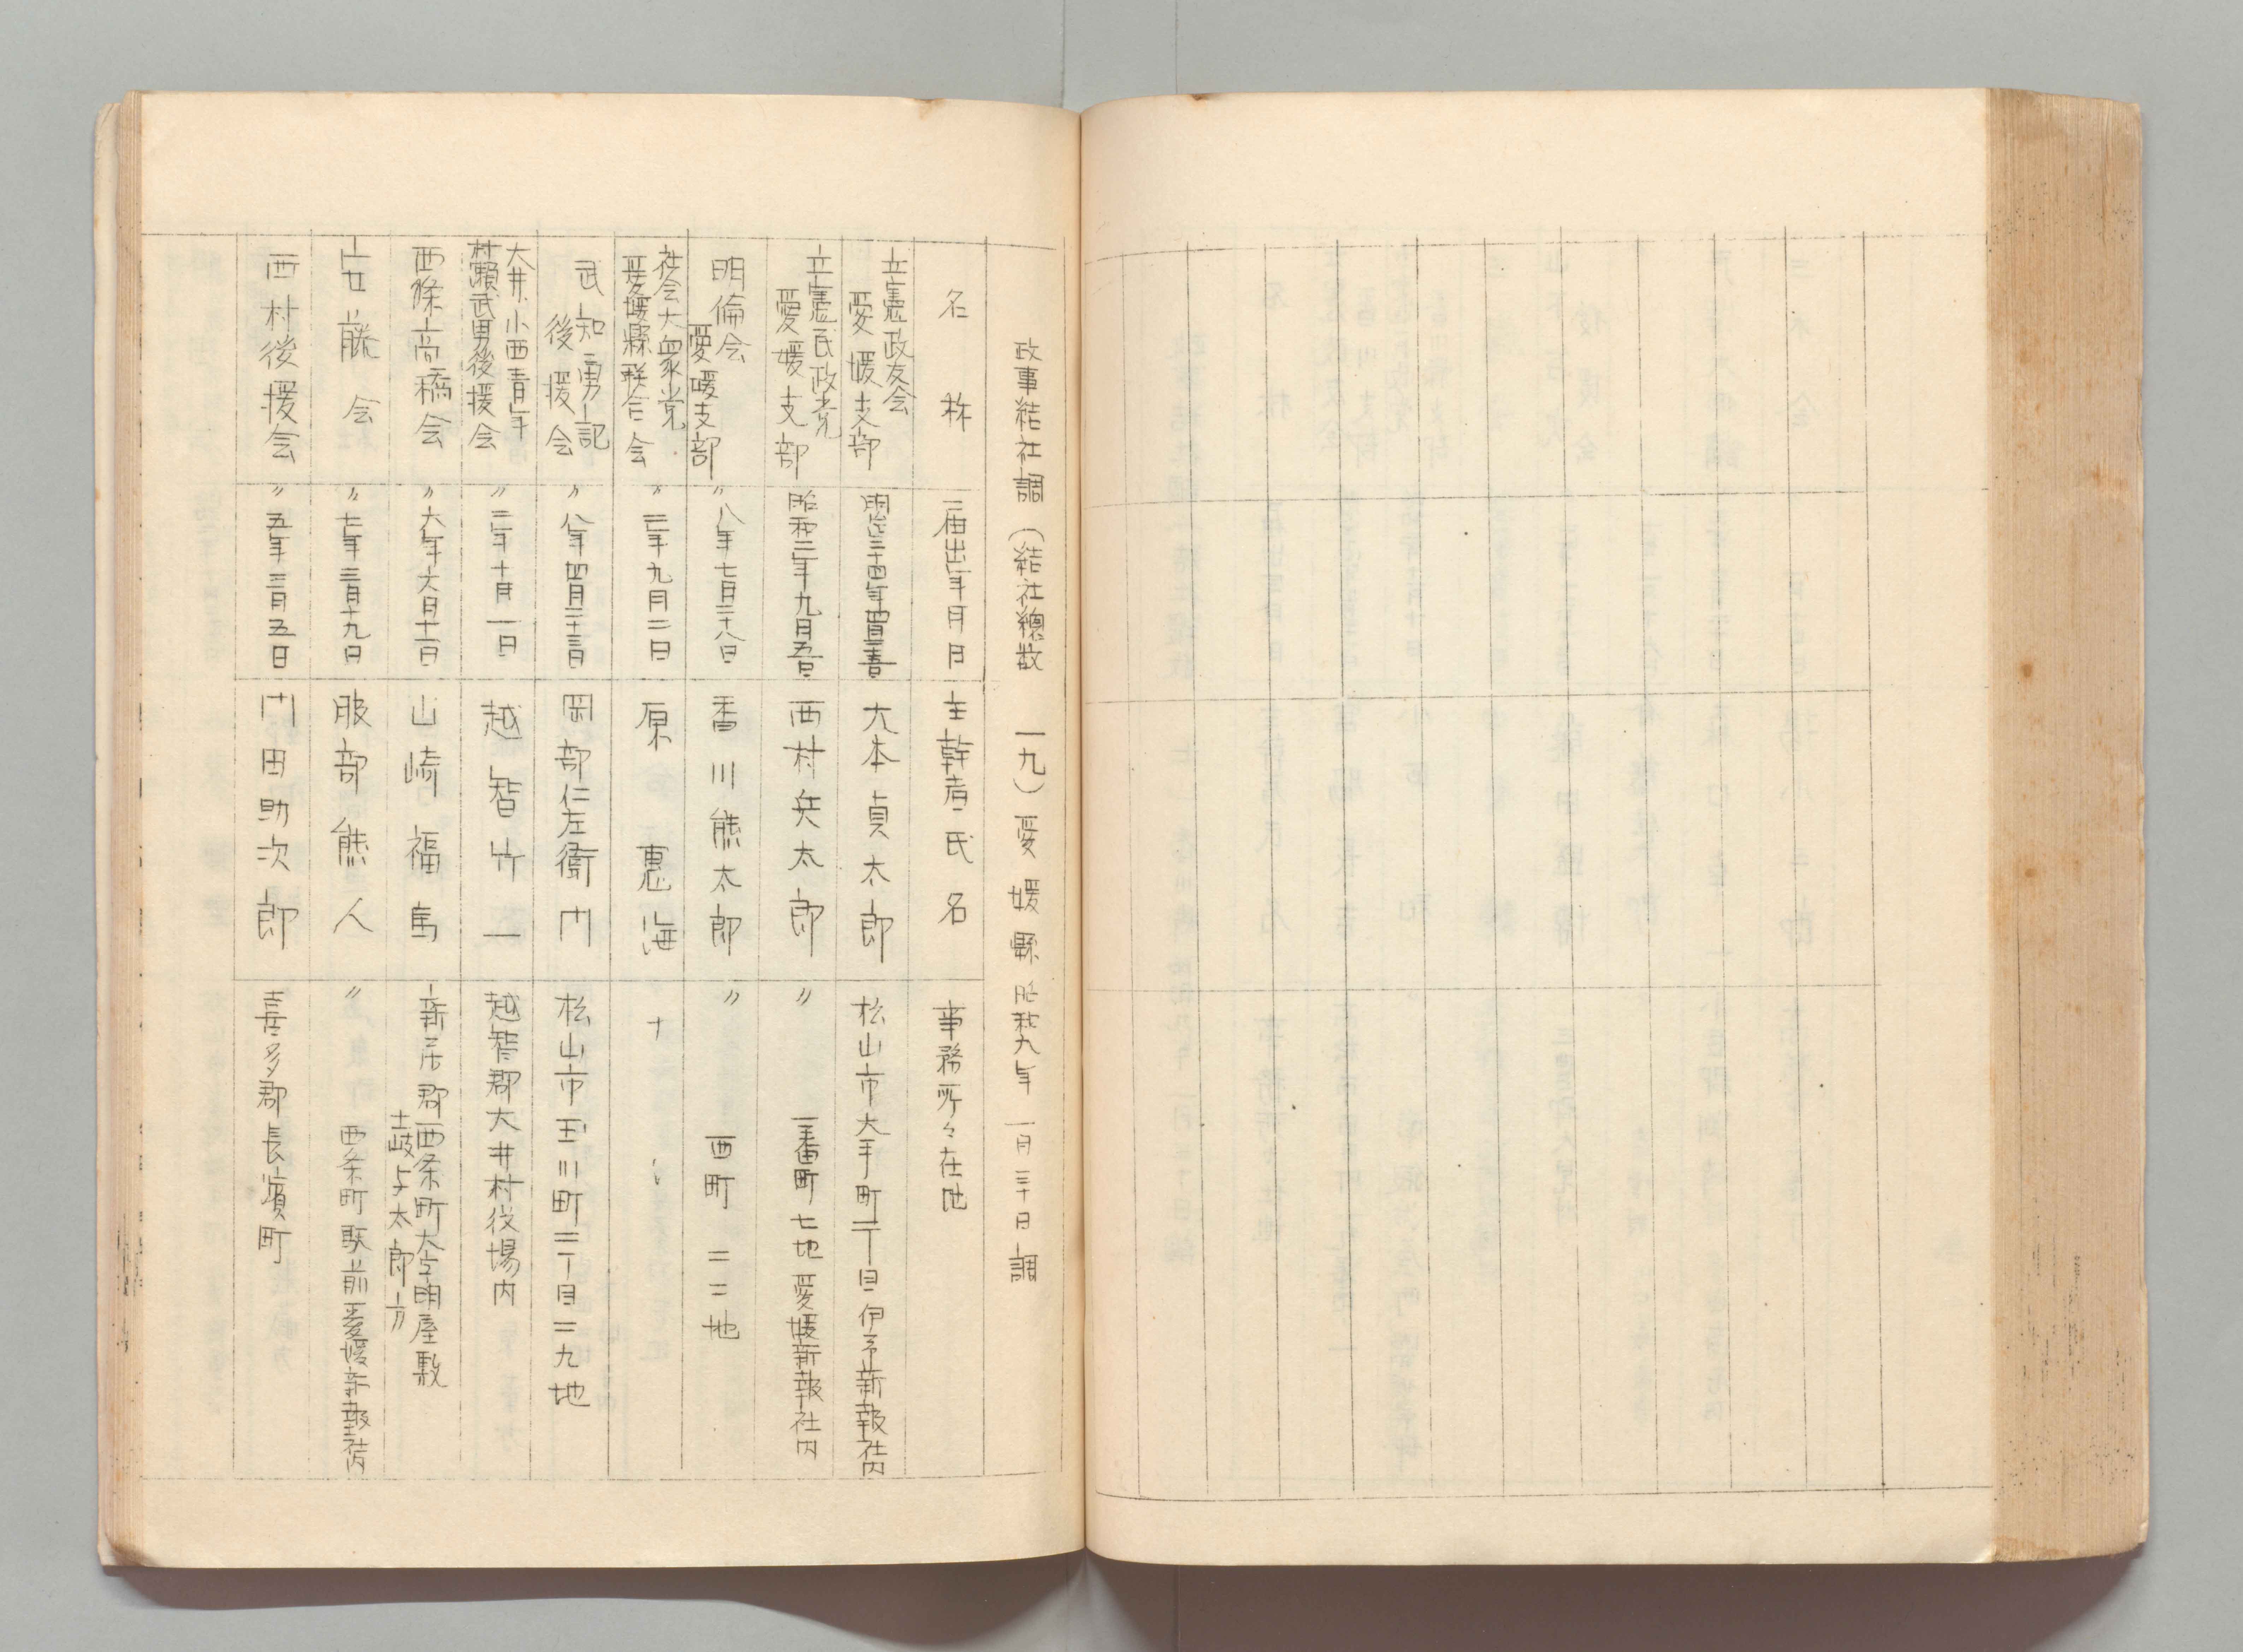 政事結社調（結社總数 一九）愛媛縣 昭和九年一月三十日調
名称 届出年月日 主幹者氏名 事務所々在地
立憲政友会
愛媛支部
明治三十四年四月二十五日 大本貞太郎 松山市大手町二丁目伊予新報社内
立憲民政党
愛媛支部
昭和二年九月五日 西村兵太郎 〃 一番町七地愛媛新報社内
明倫会
愛媛支部
〃八年七月二十八日 香川熊太郎 〃 西町二二地
社会大衆党
愛媛縣联合会
〃 年九月二日 原惠海
武知勇記
後援会
〃八年四月二十三日 岡部仁左衛門 松山市玉川町二丁目二九地
大井小西青年
村瀬武男後援会
〃三年十月一日 越智竹一 越智郡大井村役場内
西條高橋会
〃六年六月十一日 山崎福馬 新居郡西条町大字明屋敷
土岐与太郎方
安藤会 〃七年三月十九日 服部熊人 〃 西条町駅前愛媛新報社内
西村後援会 〃五年三月五日 門田助次郎 喜多郡長濱町